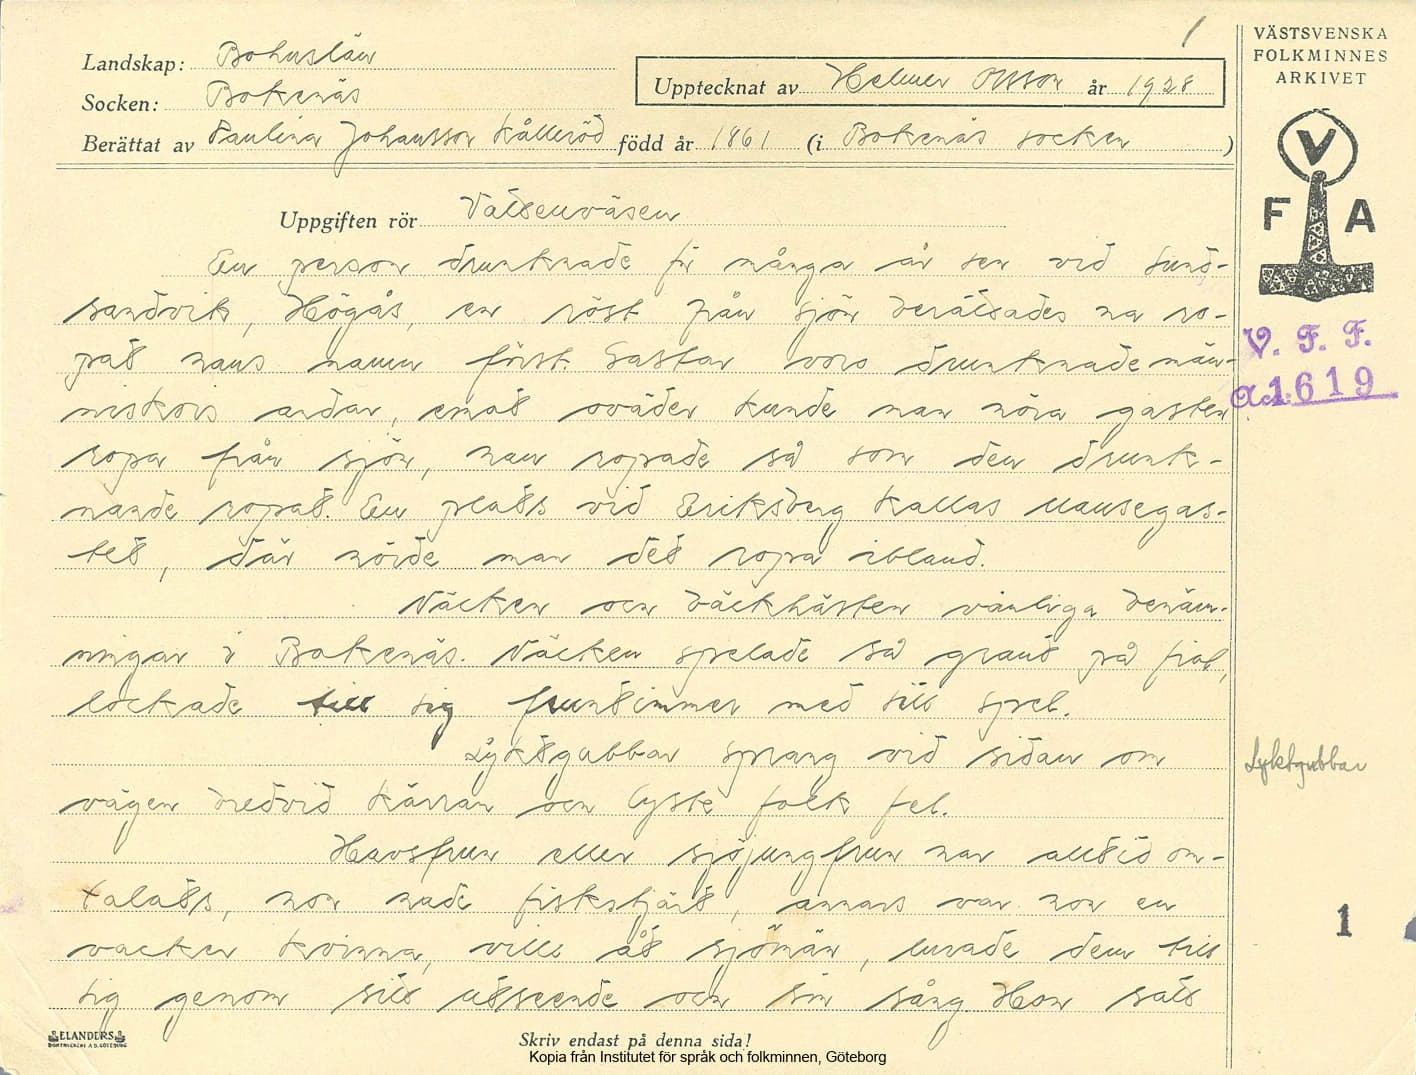 1
VÄSTSVENSKA
FOLKMINNES
ARKIVET
Landskap: Bohuslän
Socken: Bokenäs
Upptecknat av Helmer Olsson år 1928
Berättat av Paulina Johansson Kålleröd född år 1861 (i Bokenäs socken )
V
F A
Uppgiften rör Vattenväsen
En person drunknade för många år sen vid Sund-
sandvik, Högås, en röst från sjön berättades ha ro-
pat hans namn först. Gastar voro drunknade män-
niskors andar, emot oväder kunde man höra gasten
ropa från sjön, han ropade så som den drunk-
nande ropat. En plats vid Eriksberg kallas Mansegas-
tet, där hörde man det ropa ibland.
V. F. F.
Acc: 1619
Näcken och bäckhästen vanliga benäm-
ningar i Bokenäs. Näcken spelade så grant på fiol,
lockade till sig fruntimmer med sitt spel.
Lyktgubbar sprang vid sidan om
vägen bredvid kärran och lyste folk fel.
Lyktgubbar
Havsfrun eller sjöjungfrun har alltid om-
talats, hon hade fiskstjärt, annars var hon en
vacker kvinna, ville åt sjömän, lurade dem till
sig genom sitt utseende och sin sång. Hon satt
1
ELANDERS
Skriv endast på denna sida!
Kopia från Institutet för språk och folkminnen, Göteborg